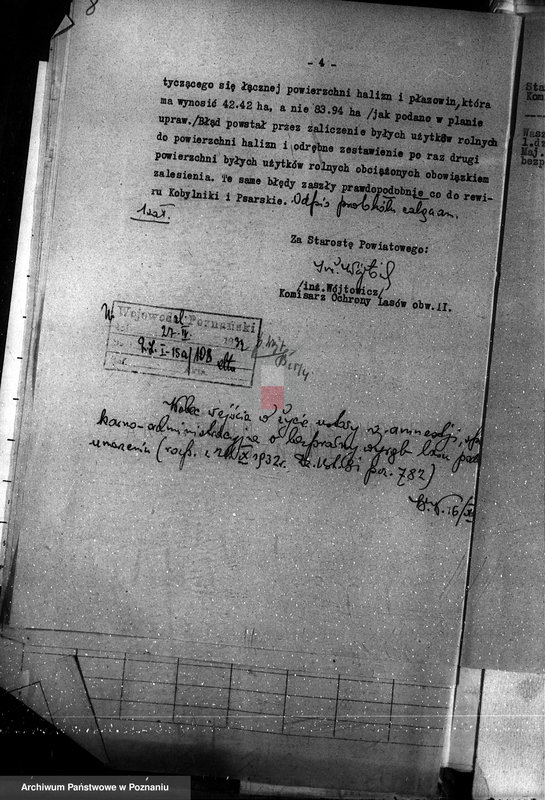 8
- 4 -
tyczącego się łącznej powierzchni halizn i płazowin,która
ma wynosić 42.42 ha, a nie 83.94 ha /jak podano w planie
upraw./Błąd powstał przez zaliczenie byłych użytków rolnych
do powierzchni halizn i odrębne zestawienie po raz drugi
powierzchni byłych użytków rolnych obciążonych obowiązkiem
zalesienia. Te same błędy zaszły prawdopodobnie co do rewi-
ru Kobylniki i Psarskie. Odpis protokółu załączam.
1 zał.
Za Starostę Powiatowego:
/inż.Wójtowicz/
Komisarz Ochrony Lasów obw.II.
Wojewoda Poznański
27. IV. 1932
I-15a/108
Wobec wejścia w życie ustawy o amnestji,
karno-administracyjne o bezprawny wyrąb lasu
umorzenia ( 1932r. poz. 782)
16/XI
Sta
Kom
Wasz
l.dz
Maj.
bezp
Archiwum Państwowe w Poznaniu